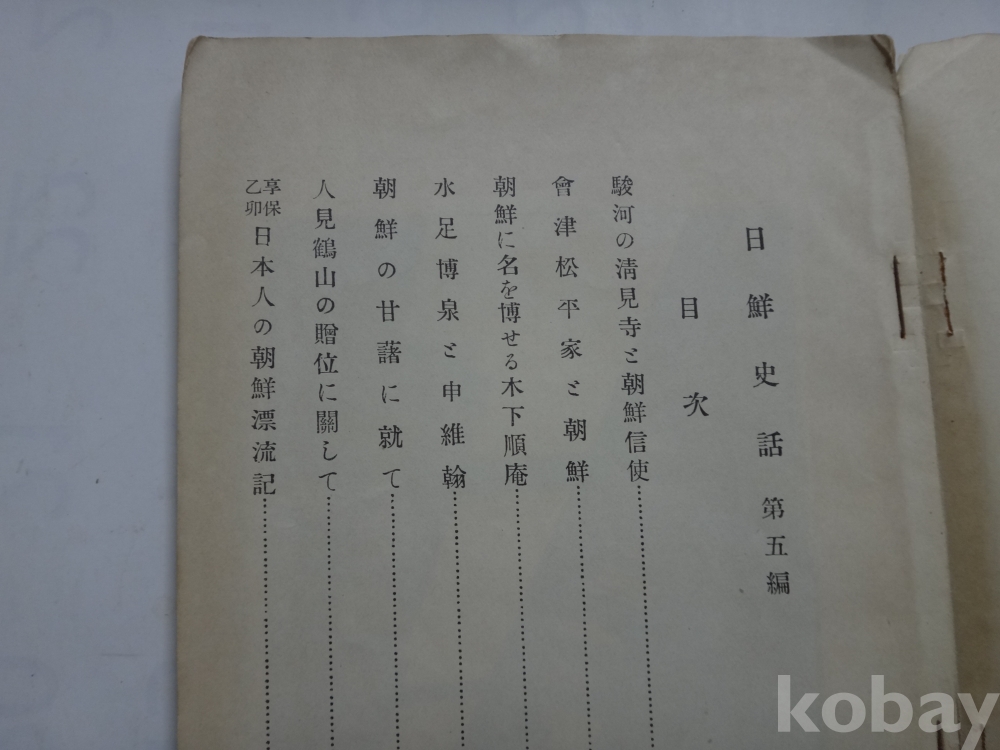 日鮮史話 第五編
目次
駿河の淸見寺と朝鮮信使
會津松平家と朝鮮
朝鮮に名を博せる木下順庵
水足博泉と申維翰
朝鮮の甘藷に就て
人見鶴山の贈位に關して
享保乙卯日本人の朝鮮漂流記
kobay